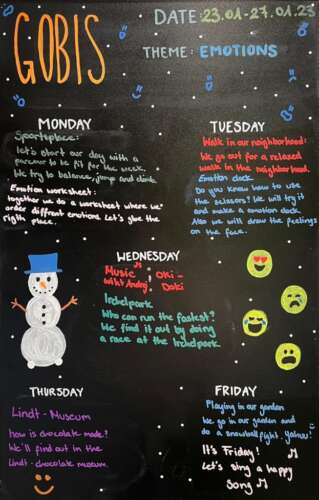 GOBIS
DATE: 23.01-27.01.23
THEME: EMOTIONS
MONDAY
Sportsplace:
Let's start our day with a
parcour to be fit for the week.
We try to balance, jump and climb
Emotion worksheet:
together we do a worksheet where we
order different emotions. Let's glue the
rigth place.
TUESDAY
Walk in our neighborhood:
We go out for a relaxed
walk in the neighborhood.
Emotion clock
Do you know how to use
the scissors? We will try it
and make a emotion clock
Also we will draw the feelings
on the face.
WEDNESDAY
Music
with Andrej
Oki-
Doki
Irchelpark
Who can run the fastest?
We find it out by doing
a race at the Irchelpark
THURSDAY
Lindt-Museum
how is chocolate made?
We'll find out in the
Lindt-chocolate museum
FRIDAY
Playing in our garden
We go in our garden and
do a snowball fight.
It's Friday!
Let's sing a happy
Song